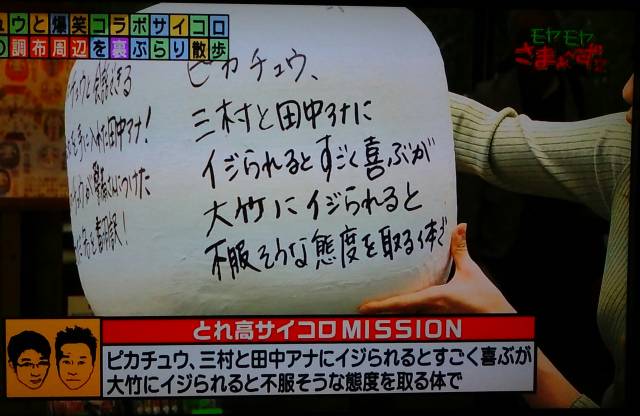 ュウと爆笑コラボサイコロ
の調布周辺を裏ぶらり散歩
モヤモヤ
さまぁ~ず2
ピカチュウ、
三村と田中アナに
イジられるとすごく喜ぶが
大竹にイジられると
不服そうな態度を取る体で
とれ高サイコロMISSION
ピカチュウ、三村と田中アナにイジられるとすごく喜ぶが
大竹にイジられると不服そうな態度を取る体で